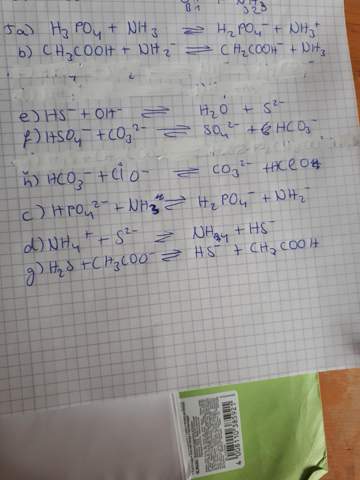 5a) H₃PO₄ + NH₃ ⇌ H₂PO₄⁻ + NH₃⁺
b) CH₃COOH + NH₂⁻ ⇌ CH₂COOH⁻ + NH₃
e) HS⁻ + OH⁻ ⇌ H₂O + S²⁻
f) HSO₄⁻ + CO₃²⁻ ⇌ SO₄²⁻ + HCO₃⁻
h) HCO₃⁻ + ClO⁻ ⇌ CO₃²⁻ + HClO
c) HPO₄²⁻ + NH₃ ⇌ H₂PO₄⁻ + NH₂⁻
d) NH₄⁺ + S²⁻ ⇌ NH₃ + HS⁻
g) H₂S + CH₃COO⁻ ⇌ HS⁻ + CH₃COOH